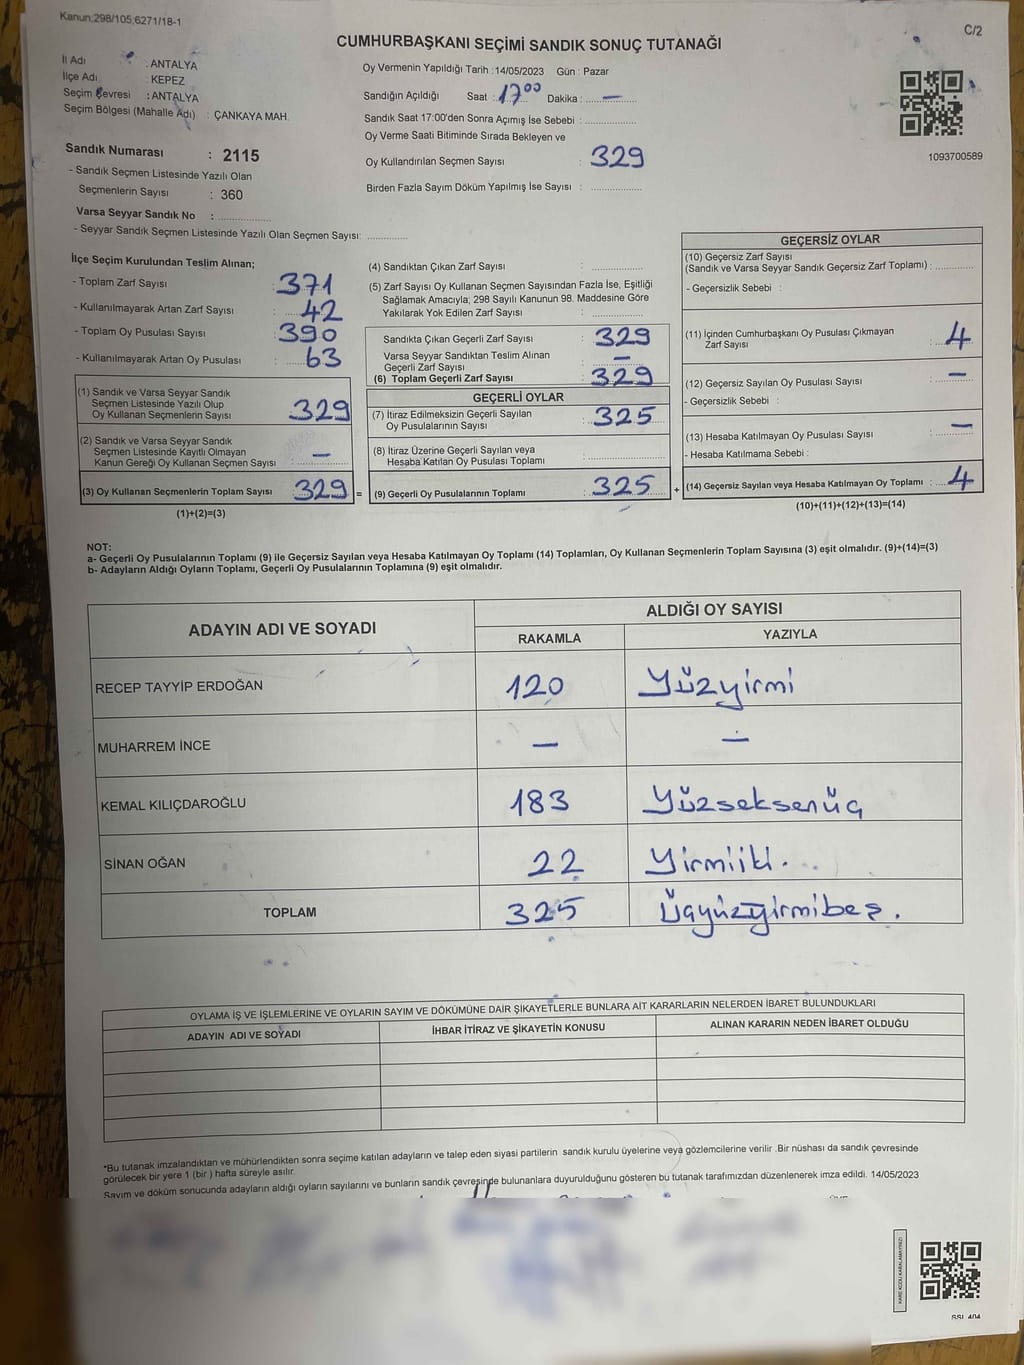 Kanun:298/105;6271/18-1
C/2
CUMHURBAŞKANI SEÇİMİ SANDIK SONUÇ TUTANAĞI
İl Adı : ANTALYA
İlçe Adı : KEPEZ
Seçim Çevresi : ANTALYA
Seçim Bölgesi (Mahalle Adı) : ÇANKAYA MAH.
Sandık Numarası : 2115
- Sandık Seçmen Listesinde Yazılı Olan
Seçmenlerin Sayısı : 360
Varsa Seyyar Sandık No : ....................
- Seyyar Sandık Seçmen Listesinde Yazılı Olan Seçmen Sayısı: ..............
Oy Vermenin Yapıldığı Tarih :14/05/2023 Gün : Pazar
Sandığın Açıldığı Saat : 17 00 Dakika : —
Sandık Saat 17:00'den Sonra Açımış İse Sebebi : ....................
Oy Verme Saati Bitiminde Sırada Bekleyen ve
Oy Kullandırılan Seçmen Sayısı : 329
Birden Fazla Sayım Döküm Yapılmış İse Sayısı : ....................
1093700589
İlçe Seçim Kurulundan Teslim Alınan;
- Toplam Zarf Sayısı : 371
- Kullanılmayarak Artan Zarf Sayısı : 42
- Toplam Oy Pusulası Sayısı : 390
- Kullanılmayarak Artan Oy Pusulası : 63
(1) Sandık ve Varsa Seyyar Sandık
Seçmen Listesinde Yazılı Olup
Oy Kullanan Seçmenlerin Sayısı 329
(2) Sandık ve Varsa Seyyar Sandık
Seçmen Listesinde Kayıtlı Olmayan
Kanun Gereği Oy Kullanan Seçmen Sayısı : —
(3) Oy Kullanan Seçmenlerin Toplam Sayısı 329 =
(1)+(2)=(3)
(4) Sandıktan Çıkan Zarf Sayısı : ....................
(5) Zarf Sayısı Oy Kullanan Seçmen Sayısından Fazla İse, Eşitliği
Sağlamak Amacıyla; 298 Sayılı Kanunun 98. Maddesine Göre
Yakılarak Yok Edilen Zarf Sayısı : ....................
Sandıkta Çıkan Geçerli Zarf Sayısı : 329
Varsa Seyyar Sandıktan Teslim Alınan
Geçerli Zarf Sayısı : —
(6) Toplam Geçerli Zarf Sayısı : 329
GEÇERLİ OYLAR
(7) İtiraz Edilmeksizin Geçerli Sayılan
Oy Pusulalarının Sayısı : 325
(8) İtiraz Üzerine Geçerli Sayılan veya
Hesaba Katılan Oy Pusulası Toplamı : ....................
(9) Geçerli Oy Pusulalarının Toplamı : 325 +
GEÇERSİZ OYLAR
(10) Geçersiz Zarf Sayısı
(Sandık ve Varsa Seyyar Sandık Geçersiz Zarf Toplamı) : .............
- Geçersizlik Sebebi :
(11) İçinden Cumhurbaşkanı Oy Pusulası Çıkmayan
Zarf Sayısı : 4
(12) Geçersiz Sayılan Oy Pusulası Sayısı : —
- Geçersizlik Sebebi :
(13) Hesaba Katılmayan Oy Pusulası Sayısı : —
- Hesaba Katılmama Sebebi :
(14) Geçersiz Sayılan veya Hesaba Katılmayan Oy Toplamı : 4
(10)+(11)+(12)+(13)=(14)
NOT:
a- Geçerli Oy Pusulalarının Toplamı (9) ile Geçersiz Sayılan veya Hesaba Katılmayan Oy Toplamı (14) Toplamları, Oy Kullanan Seçmenlerin Toplam Sayısına (3) eşit olmalıdır. (9)+(14)=(3)
b- Adayların Aldığı Oyların Toplamı, Geçerli Oy Pusulalarının Toplamına (9) eşit olmalıdır.
ADAYIN ADI VE SOYADI ALDIĞI OY SAYISI
RAKAMLA YAZIYLA
RECEP TAYYİP ERDOĞAN 120 Yüzyirmi
MUHARREM İNCE — —
KEMAL KILIÇDAROĞLU 183 Yüzseksenüç
SİNAN OĞAN 22 Yirmiiki.
TOPLAM 325 Üçyüzyirmibeş.
OYLAMA İŞ VE İŞLEMLERİNE VE OYLARIN SAYIM VE DÖKÜMÜNE DAİR ŞİKAYETLERLE BUNLARA AİT KARARLARIN NELERDEN İBARET BULUNDUKLARI
ADAYIN ADI VE SOYADI İHBAR İTİRAZ VE ŞİKAYETİN KONUSU ALINAN KARARIN NEDEN İBARET OLDUĞU
*Bu tutanak imzalandıktan ve mühürlendikten sonra seçime katılan adayların ve talep eden siyasi partilerin sandık kurulu üyelerine veya gözlemcilerine verilir .Bir nüshası da sandık çevresinde
görülecek bir yere 1 (bir ) hafta süreyle asılır.
Sayım ve döküm sonucunda adayların aldığı oyların sayılarını ve bunların sandık çevresinde bulunanlara duyurulduğunu gösteren bu tutanak tarafımızdan düzenlenerek imza edildi. 14/05/2023
KARE KODU KARALAMAYINIZ!